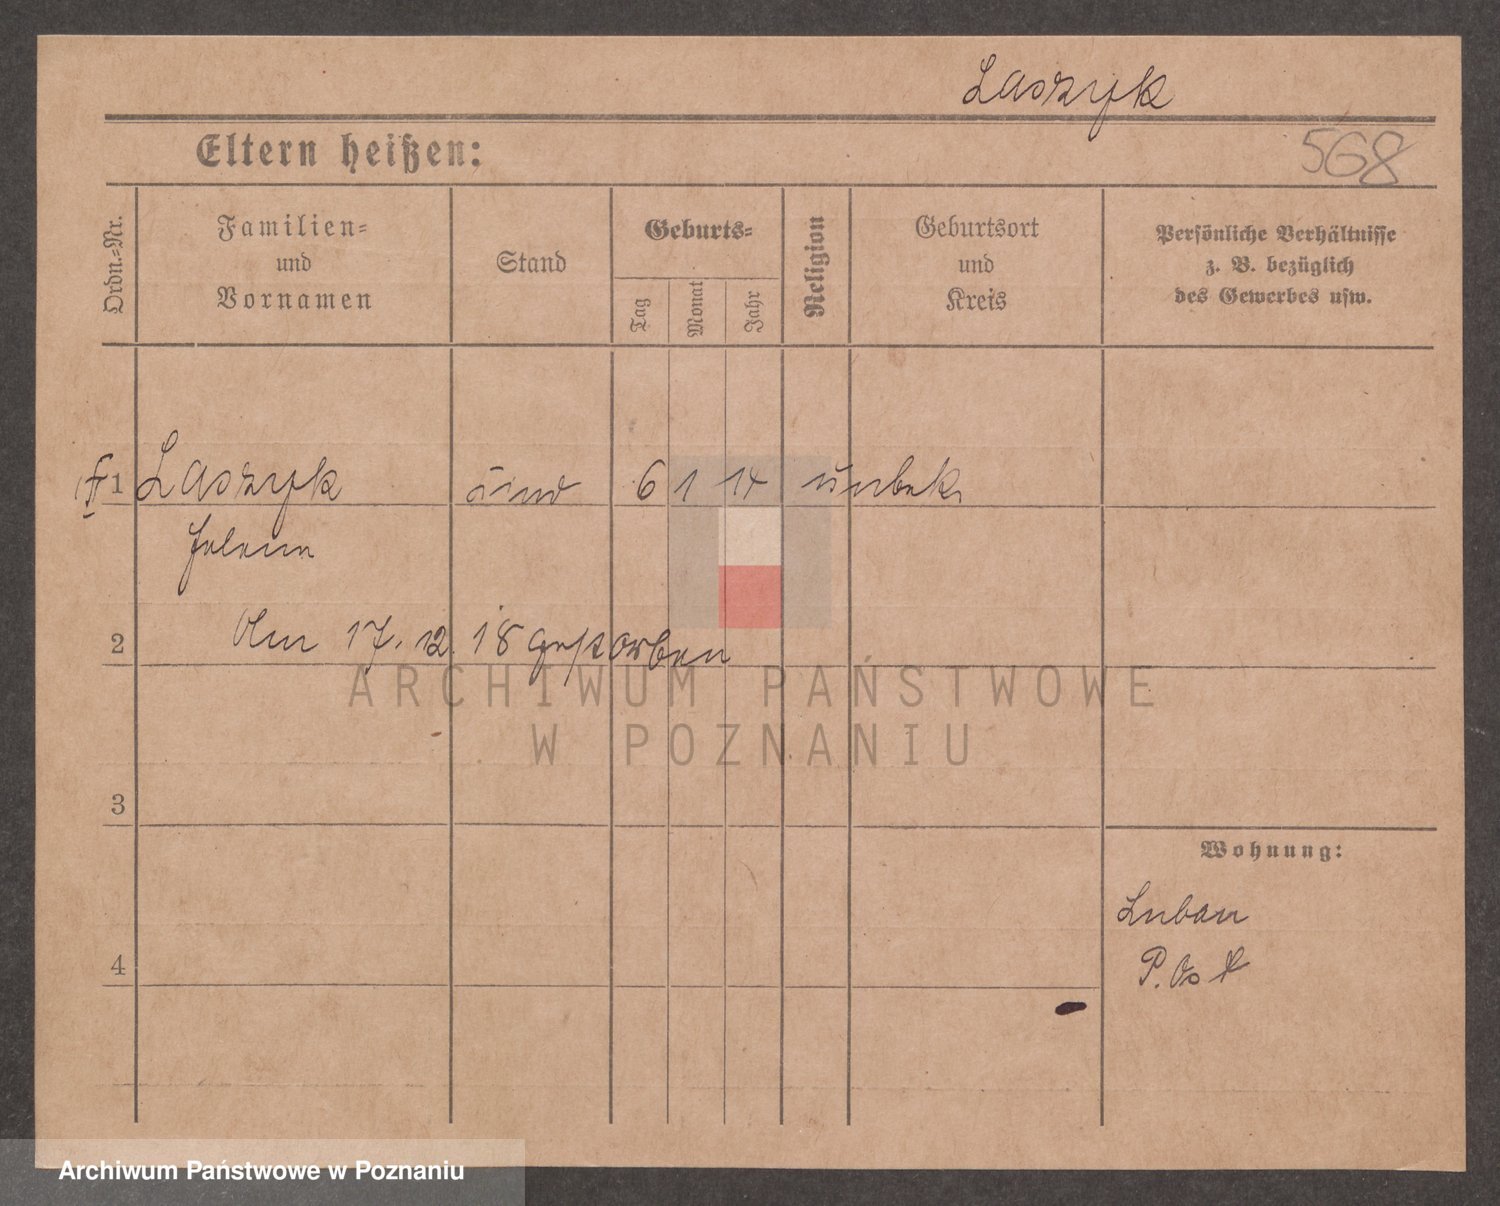 Laszyk
Eltern heißen:
568
Ordn.-Nr.
Familien-
und
Vornamen
Stand
Geburts-
Tag
Monat
Jahr
Religion
Geburtsort
und
Kreis
Persönliche Verhältnisse
z. B. bezüglich
des Gewerbes usw.
1 Laszyk 6 1 14 unbek.
Am 17. 12. 18 gestorben
2
ARCHIWUM PAŃSTWOWE
W POZNANIU
3
Wohnung:
Luban
P. Ost
4
Archiwum Państwowe w Poznaniu